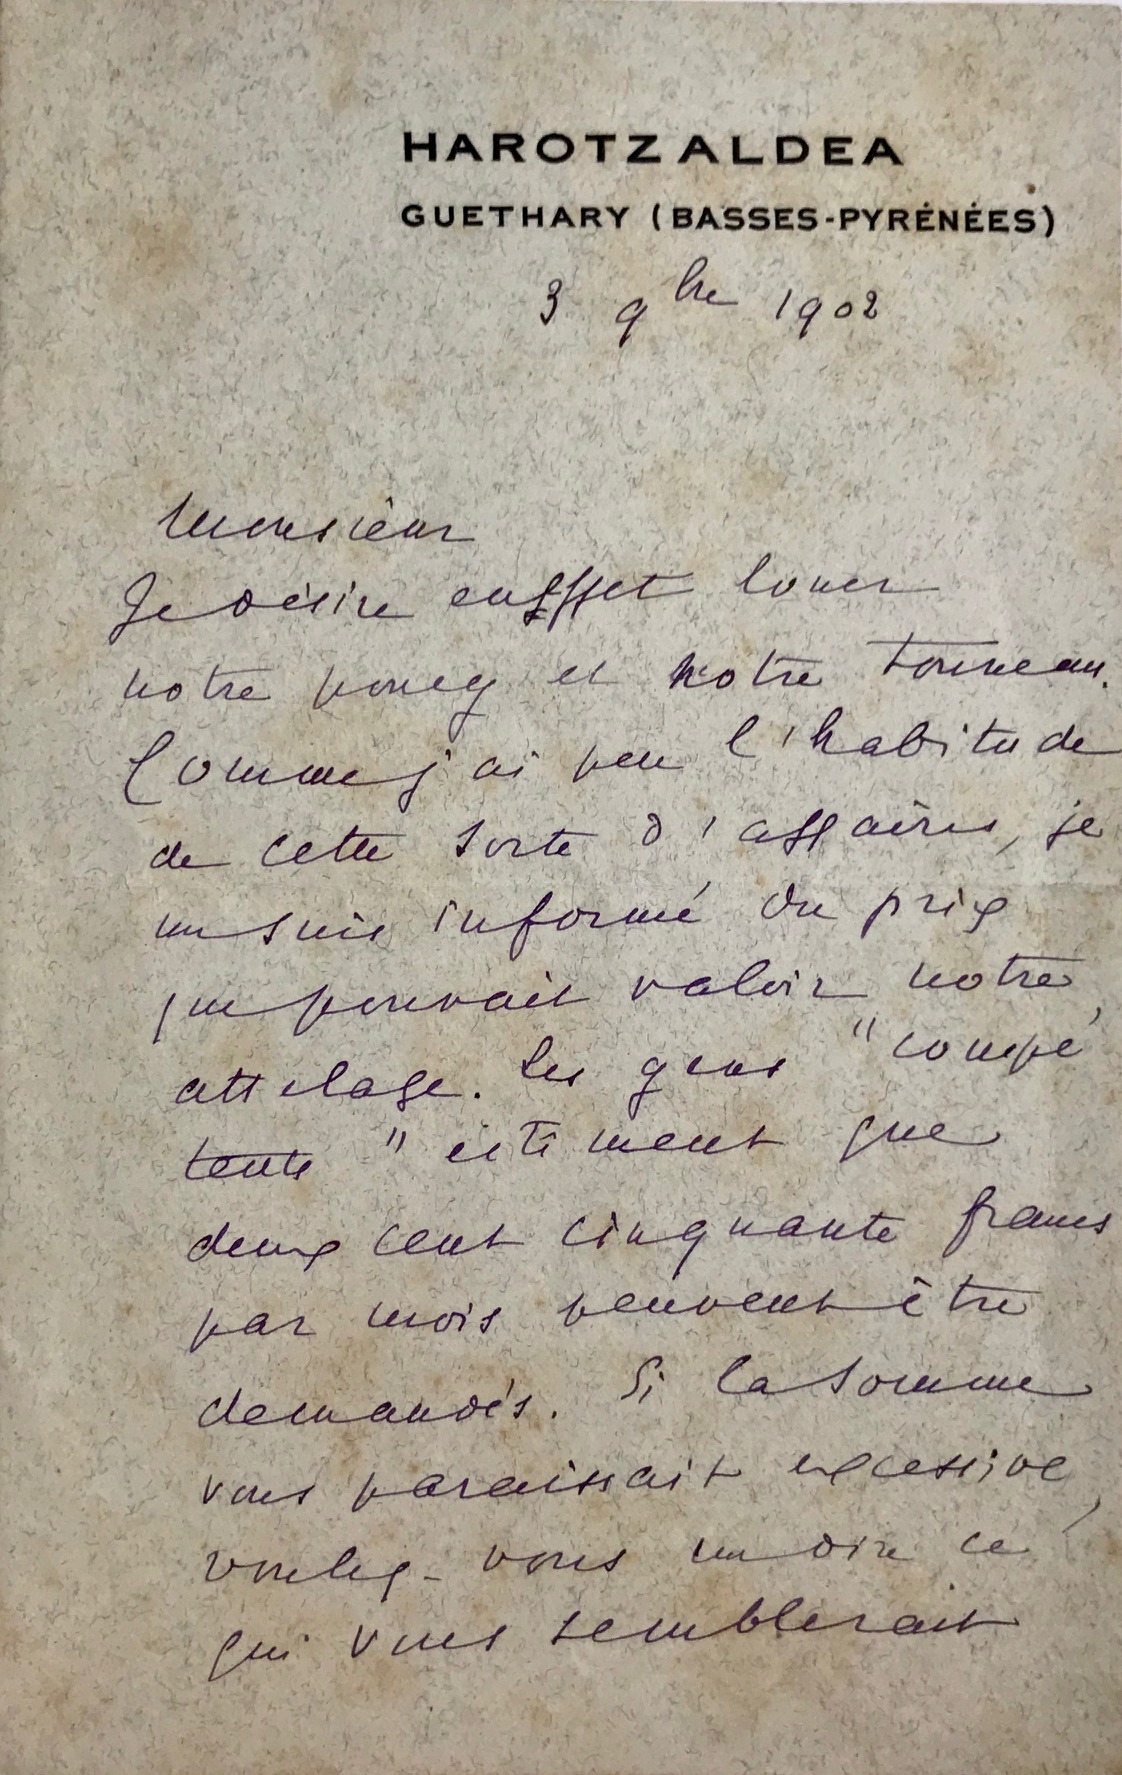 HAROTZ ALDEA
GUETHARY (BASSES-PYRÉNÉES)
3 9bre 1902
Monsieur
Je désire en effet louer
notre poney et notre tonneau.
Comme j'ai peu l'habitude
de cette sorte d'affaires, je
me suis informé du prix
que pouvait valoir notre
attelage. Les gens "compé
tents" estiment que
deux cent cinquante francs
par mois peuvent être
demandés. Si la somme
vous paraissait excessive,
voulez-vous me dire ce
qui vous semblerait